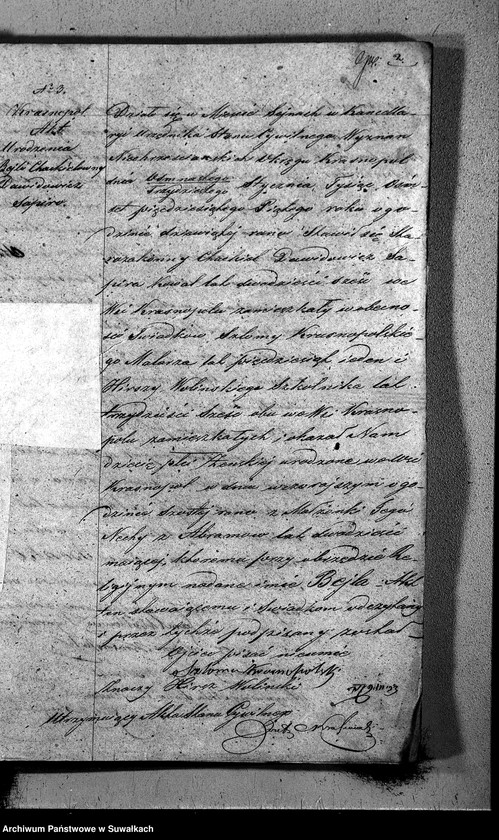 2.
No 3.
Krasnopol
Akt
Urodzenia
Bejli Chackielowny
Dawidowicz
Sapiro.
Działo się w Mieście Sejnach w kancella-
ryi Urzędnika Stanu Cywilnego Wyznań
Niechrześcianskich Okręgu Krasnopol
dnia Osmnastego
Trzydziestego Stycznia Tysiąc Ośm-
set pięćdziesiątego Piątego roku o go-
dzinie dziewiątej rano Stawił się Sta-
rozakonny Dawidowicz Sa-
pira lat dwadzieścia sześć we
Wsi Krasnopolu zamieszkały w obecno-
ści Świadków Szlomy Krasnopolskie-
go Malarza lat pięćdziesiąt ieden i
Hirszy Wolińskiego Szkolnika lat
trzydzieści sześć obu we Wsi Krasno-
polu zamieszkałych i okazał Nam
dziecię płci żeńskiej urodzone we wsi
Krasnopol w dniu wczorajszym o go-
dzinie szóstej rano z Małżonki Jego
Nechy z Abramow lat dwadzieścia
maiącej, któremu przy obrzędzie Re-
ligijnym nadane imię Bejla. Akt
ten stawaiącemu i Świadkom odczytany
i przez tychże podpisany został
Ojciec pisać nieumie
Szloma Krasnopolski
Hirsz Woliński
Utrzymuiący Akta Stanu Cywilnego